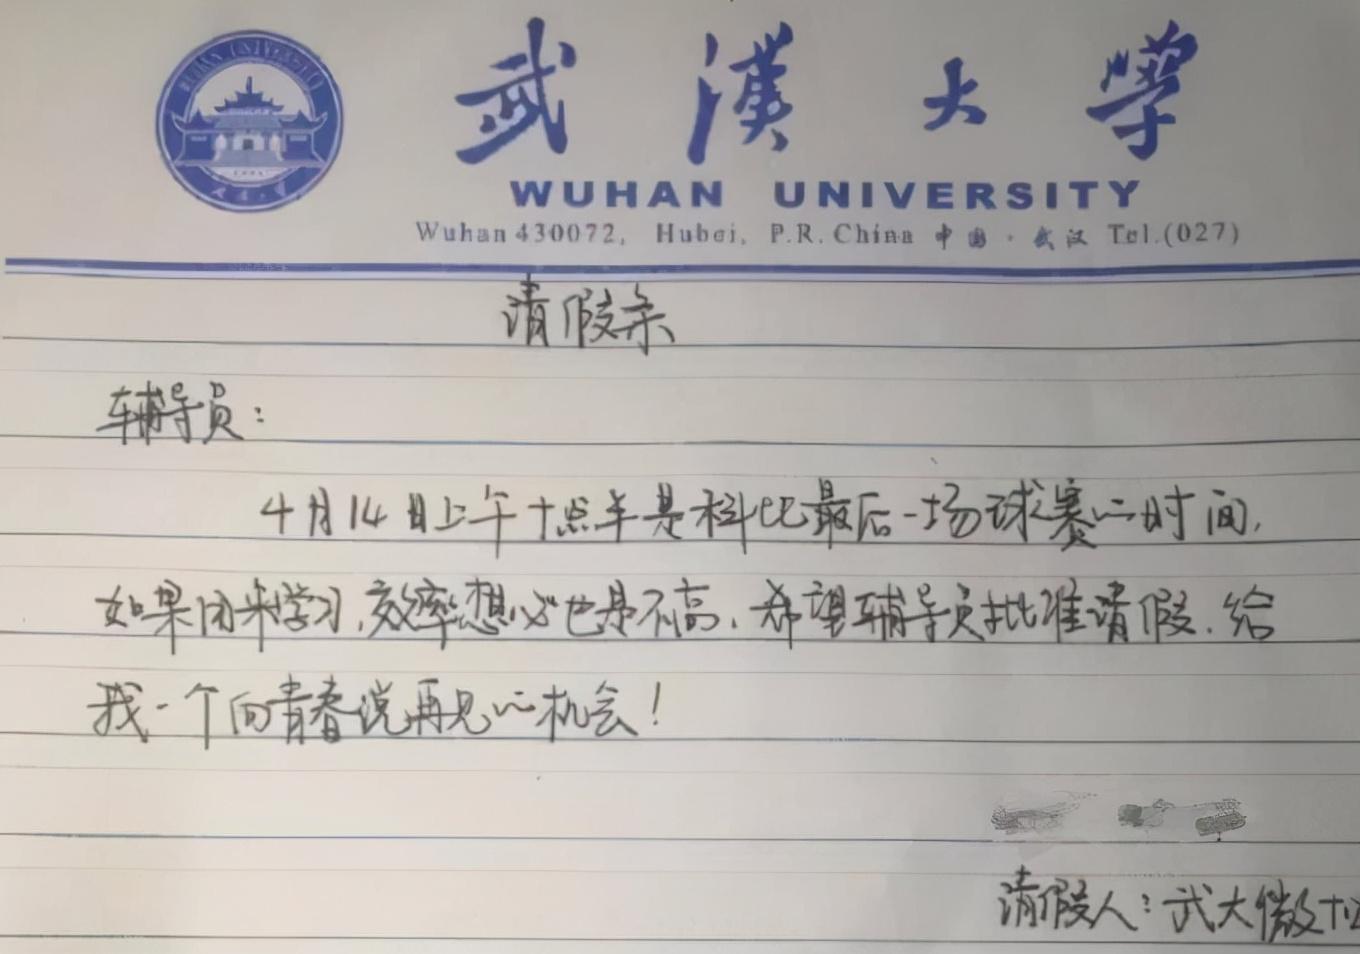 WUHAN UNIVERSITY
武漢大學
WUHAN UNIVERSITY
Wuhan 430072, Hubei, P.R. China 中国·武汉 Tel.(027)
请假条
辅导员：
4月14日上午十点半是科比最后一场球赛的时间,
如果用来学习,效率想必也是不高,希望辅导员批准请假,给
我一个向青春说再见的机会!
请假人:武大微